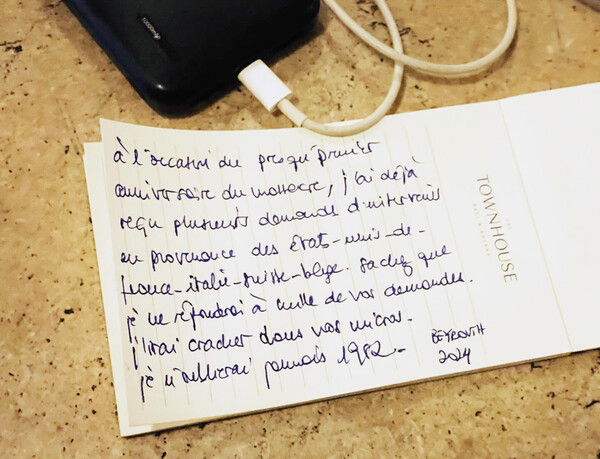 à l'occasion du presqu'premier
anniversaire du massacre, j'ai déjà
reçu plusieurs demandes d'interviews
en provenance des états-unis-de-
france-italie-suisse-belge. sachez que
je ne répondrai à nulle de vos demandes.
j'irai cracher dans vos micros.
je n'oublierai jamais 1982.-
BEYROUTH
2024
TOWNHOUSE